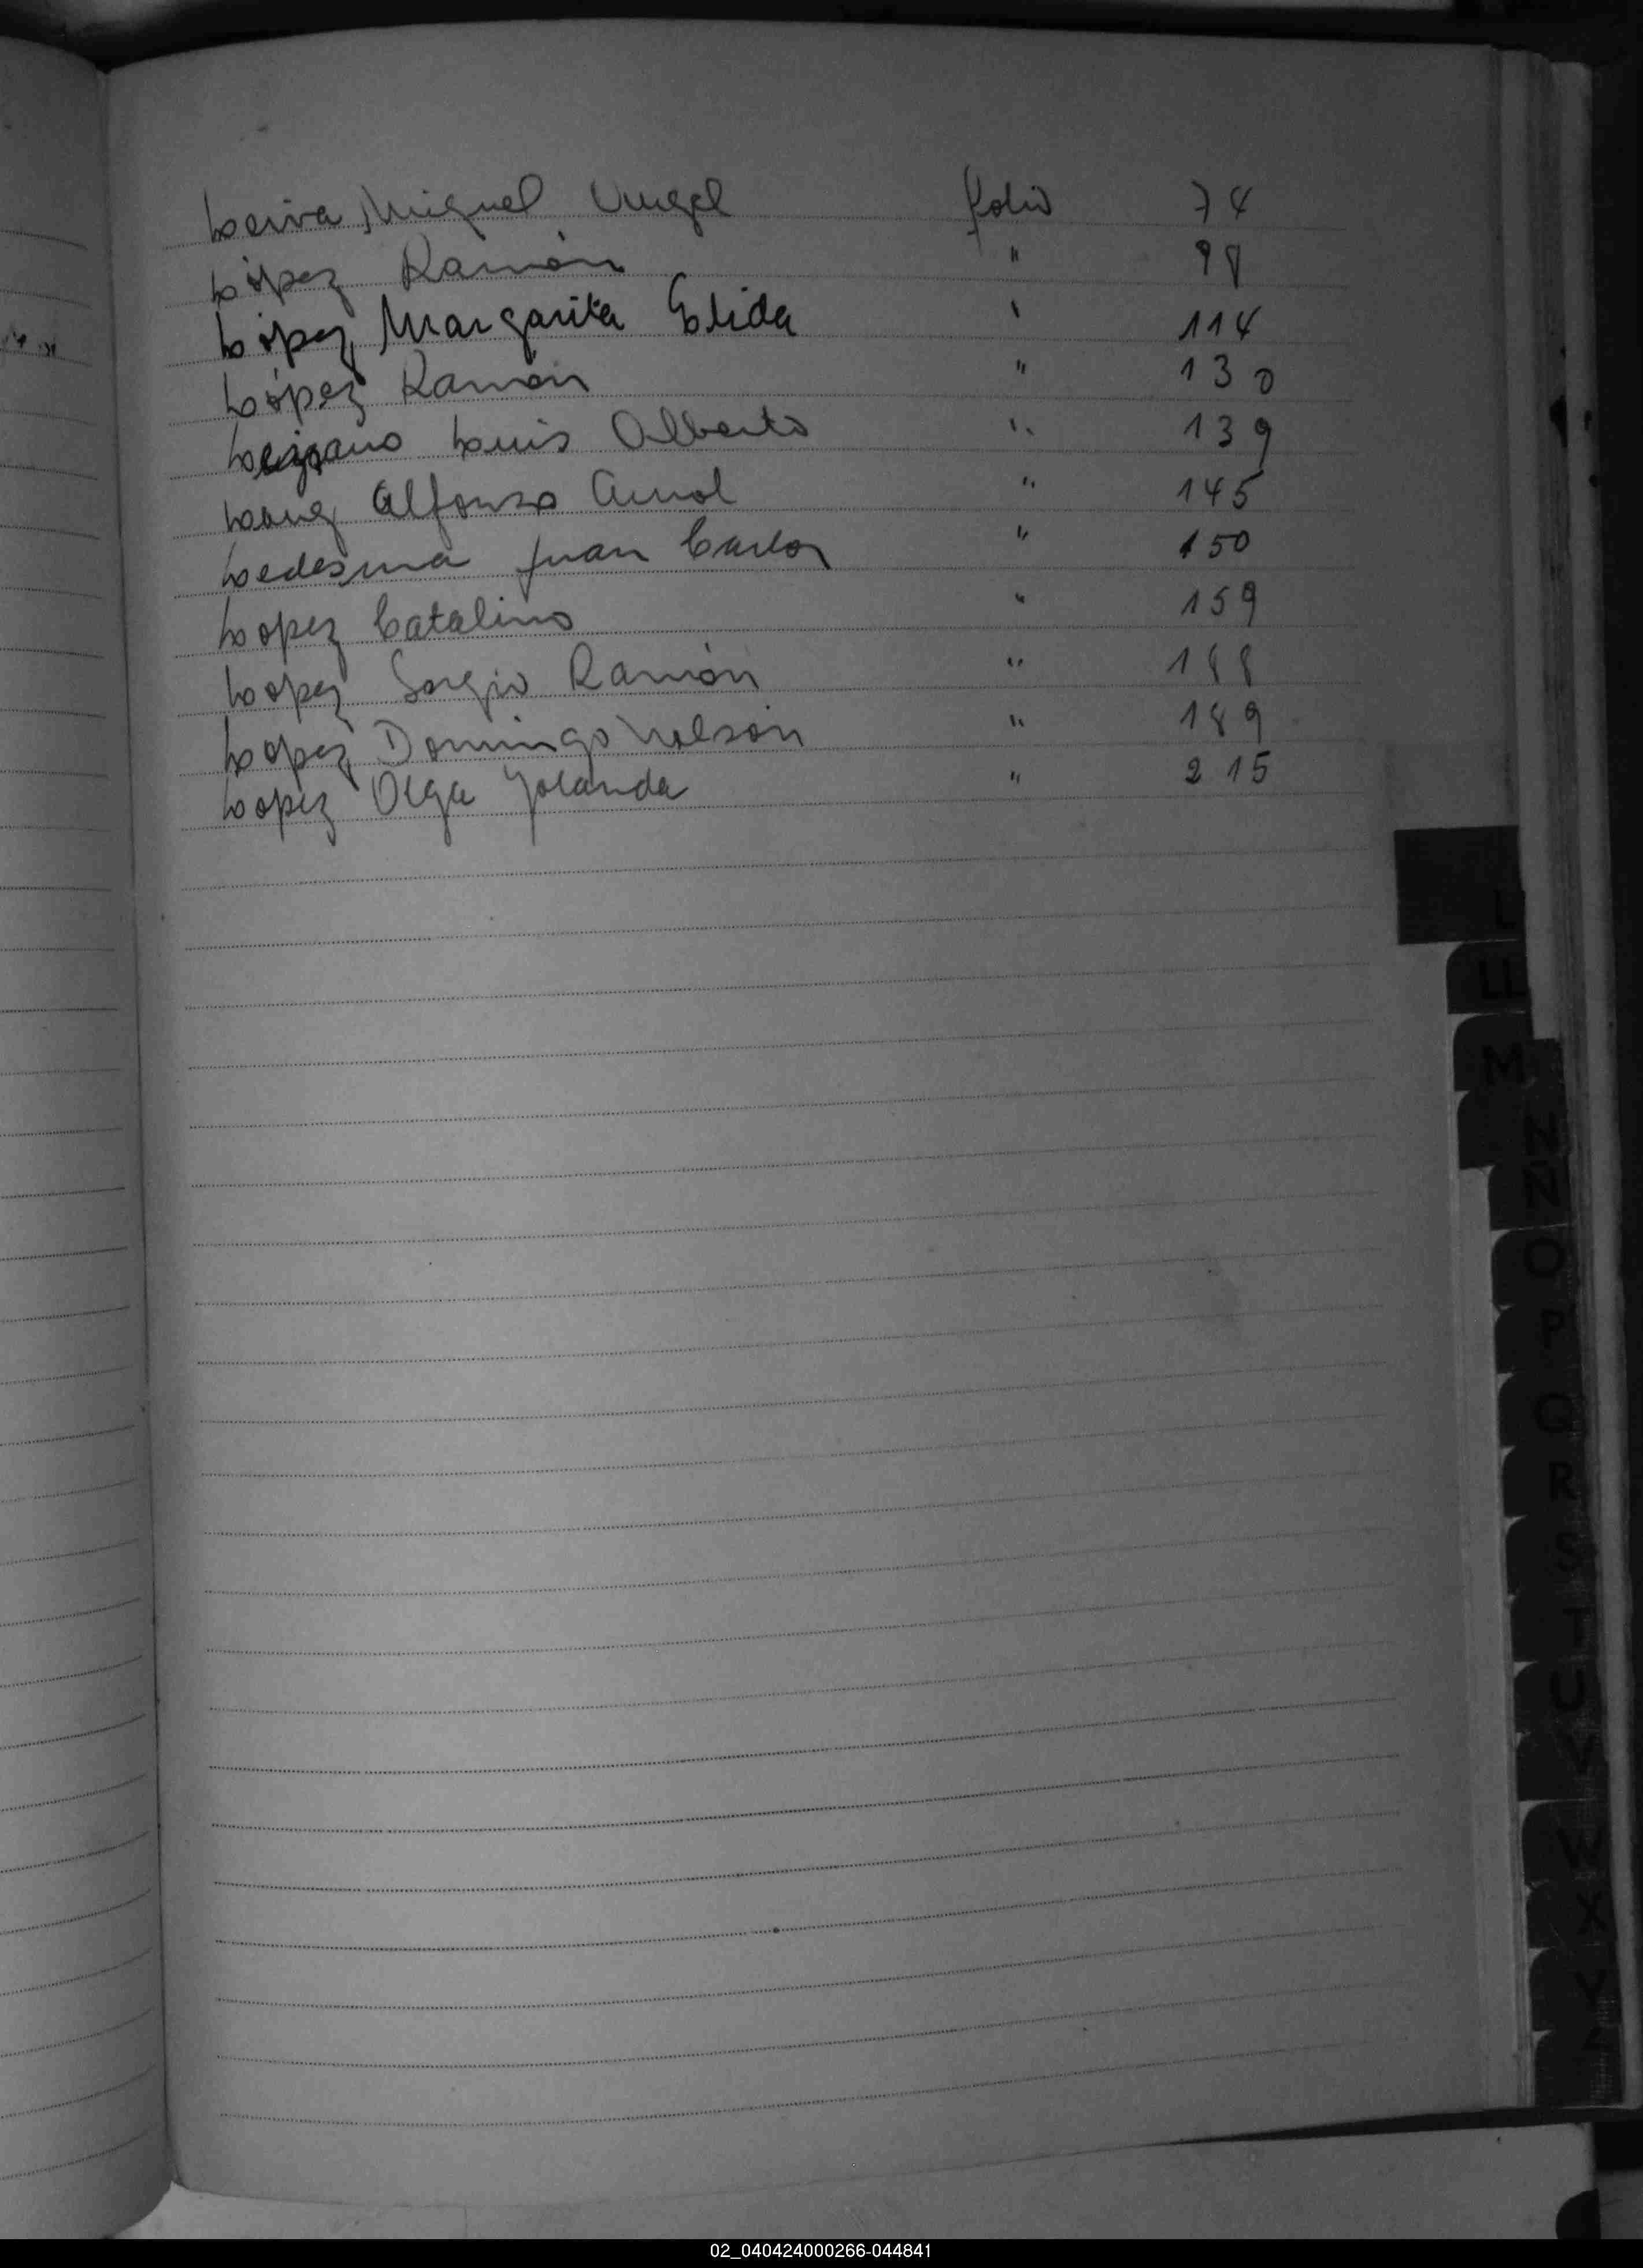 Leiva, Miguel Angel folio 74
López Ramón " 98
López, Margarita Elida " 114
López Ramón " 130
Luis Alberto " 139
Alfonso " 145
Ledesma Juan Carlos " 150
Lopez Catalino " 159
Lopez Sergio Ramón " 188
Lopez Domingo Nelson " 189
Lopez Olga Yolanda " 215
L
LL
M
N
Ñ
O
P
Q
R
S
T
U
V
W
X
Y
Z
02_040424000266-044841